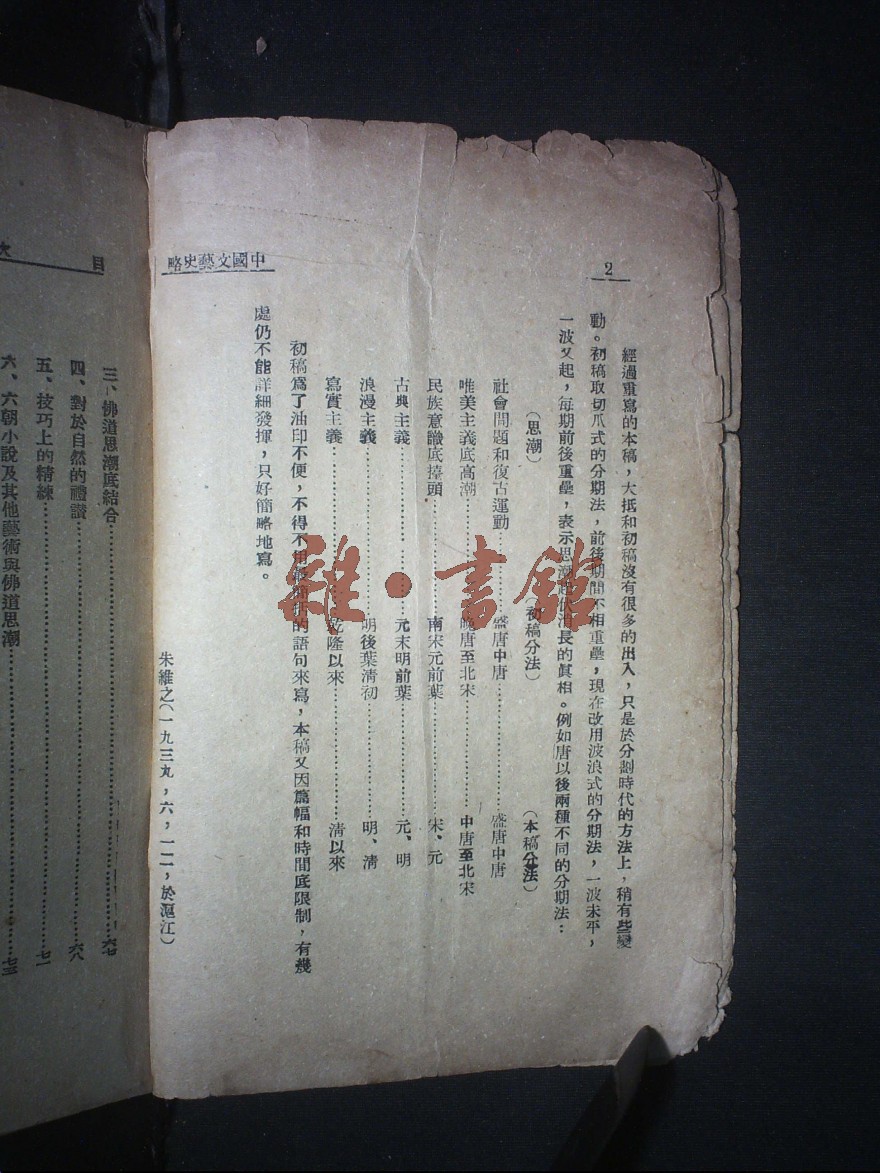 2
經過重寫的本稿，大抵和初稿沒有很多的出入，只是於分劃時代的方法上，稍有些變
動。初稿取切爪式的分期法，前後期間不相重疊，現在改用波浪式的分期法，一波未平，
一波又起，每期前後重疊，表示思潮起伏消長的眞相。例如唐以後兩種不同的分期法：
（思潮）（初稿分法）（本稿分法）
社會問題和復古運動……盛唐中唐……盛唐中唐
唯美主義底高潮……晚唐至北宋……中唐至北宋
民族意識底擡頭……南宋元前葉……宋、元
古典主義……元末明前葉……元、明
浪漫主義……明後葉清初……明、清
寫實主義……乾隆以來……清以來
初稿爲了油印不便，不得不用的語句來寫，本稿又因篇幅和時間底限制，有幾
處仍不能詳細發揮，只好簡略地寫。
朱維之（一九三九，六，一二，於滬江）
中國文藝史略
目次
三、佛道思潮底結合……六七
四、對於自然的禮讚……六八
五、技巧上的精練……七一
六、六朝小說及其他藝術與佛道思潮……七三
雜·書館